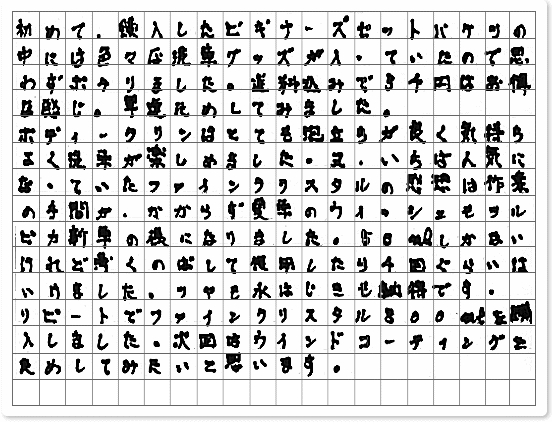 初めて、購入したビギナーズセットバケツの
中には色々な洗車グッズが入っていたので思
わずポチりました。送料込みで3千円はお得
な感じ。早速ためしてみました。
ボディークリンはとても泡立ちが良く気持ち
よく洗車が楽しめました。ま、いちばん気に
なっていたファインクリスタルの感想は作業
の手間が、かからず愛車のウィッシュもツル
ピカ新車の様になりました。50mlしかない
けれど薄くのばして使用したら4回ぐらいは
いけました。ツヤも水はじきも納得です。
リピートでファインクリスタル300mlを購
入しました。次回はウインドコーティングを
ためしてみたいと思います。